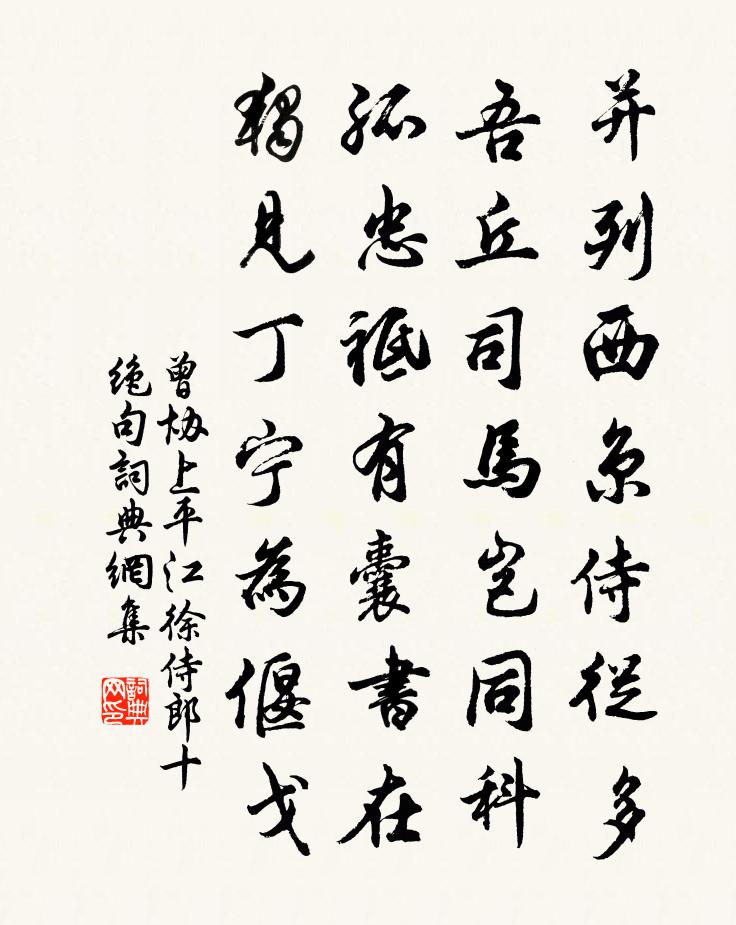 并列西京侍從多
吾丘司馬豈同科
孤忠祗有囊書在
獨見丁宁為偃戈
曾協上平江徐侍郎十
絕句詞典網集
詞典网印